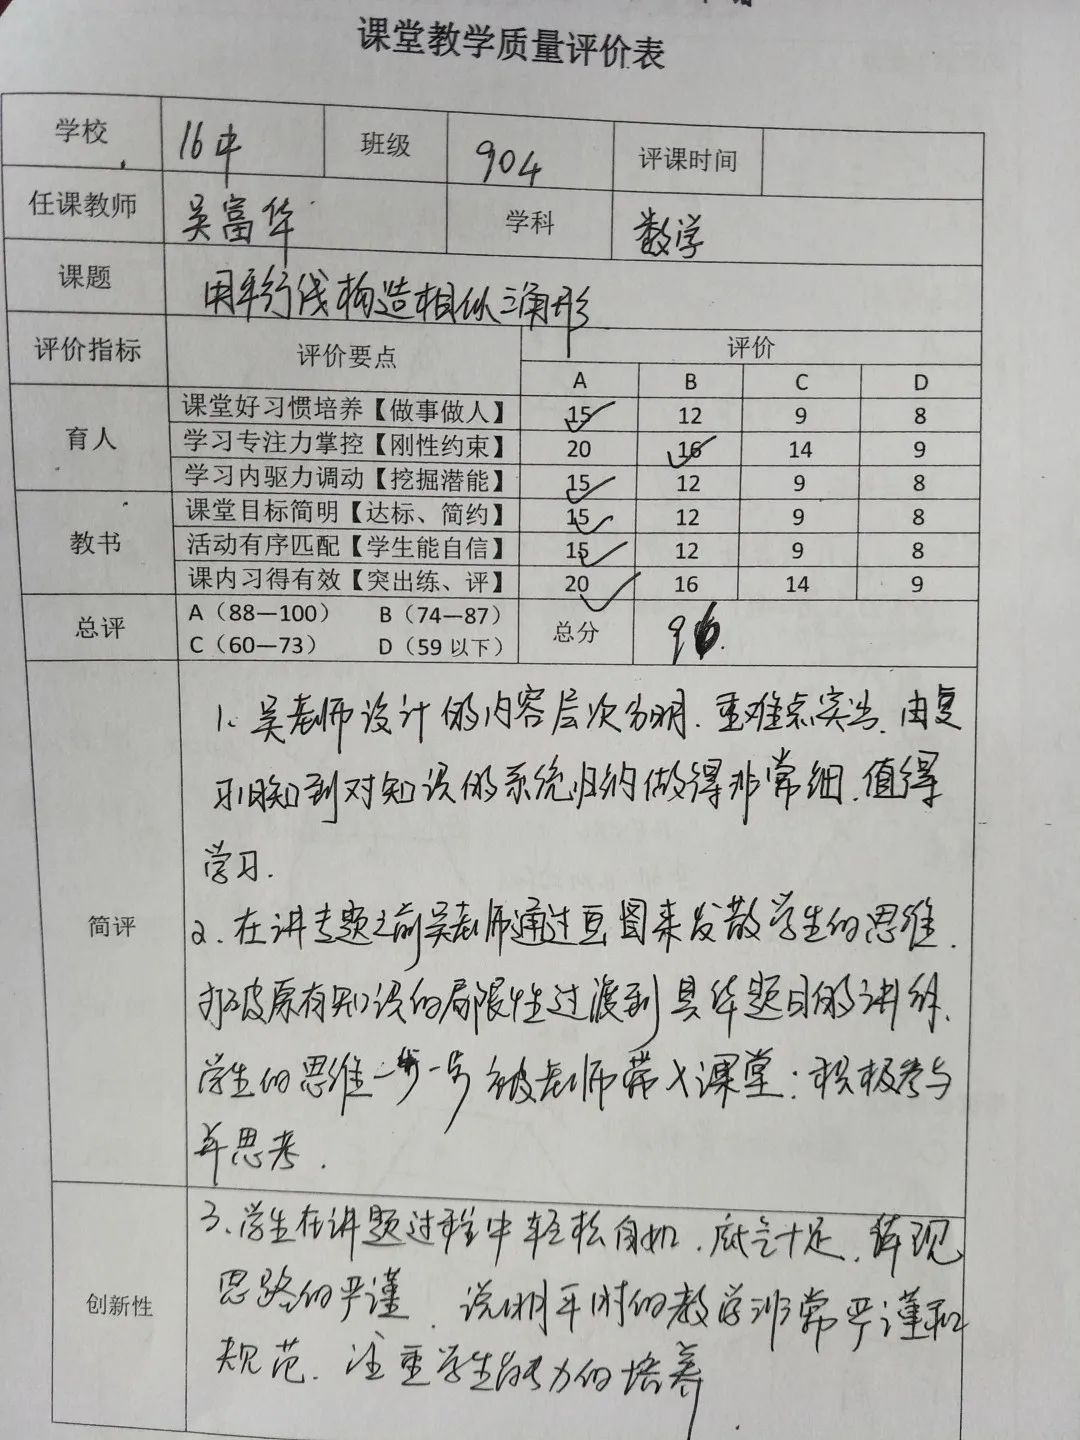 课堂教学质量评价表
学校 16中 班级 904 评课时间
任课教师 吴富华 学科 数学
课题 用平行线构造相似三角形
评价指标 评价要点 评价
A B C D
育人
课堂好习惯培养【做事做人】 15 12 9 8
学习专注力掌控【刚性约束】 20 16 14 9
学习内驱力调动【挖掘潜能】 15 12 9 8
教书
课堂目标简明【达标、简约】 15 12 9 8
活动有序匹配【学生能自信】 15 12 9 8
课内习得有效【突出练、评】 20 16 14 9
总评 A（88—100） B（74—87） 总分 96.
C（60—73） D（59以下）
简评
1. 吴老师设计的内容层次分明.重难点突出.由复
习旧知到对知识的系统归纳做得非常细.值得
学习.
2.在讲专题之前吴老师通过画图来发散学生的思维.
打破原有知识的局限性过渡到具体题目的讲练.
学生的思维一步一步被老师带入课堂:积极参与
并思考.
创新性
3.学生在讲题过程中轻松自如.底气十足.体现
思路的严谨.说明平时的教学非常严谨和
规范.注重学生能力的培养.